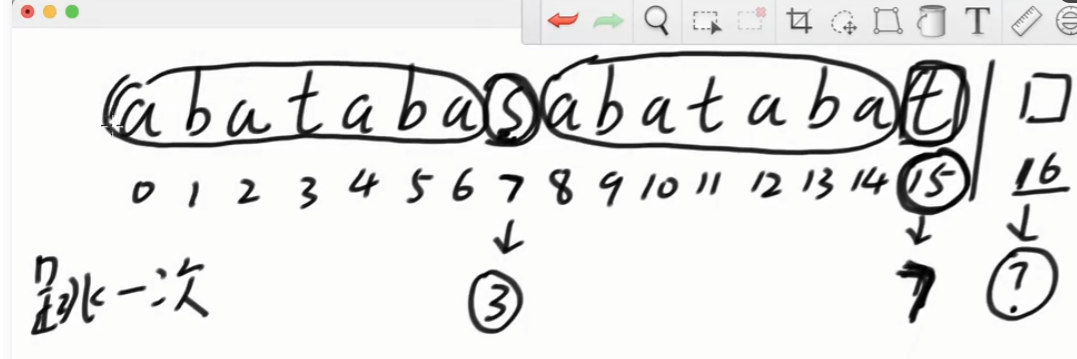 abatabasabatabat|□
0 1 2 3 4 5 6 7 8 9 10 11 12 13 14 15 16
跳一次 3 7 ?